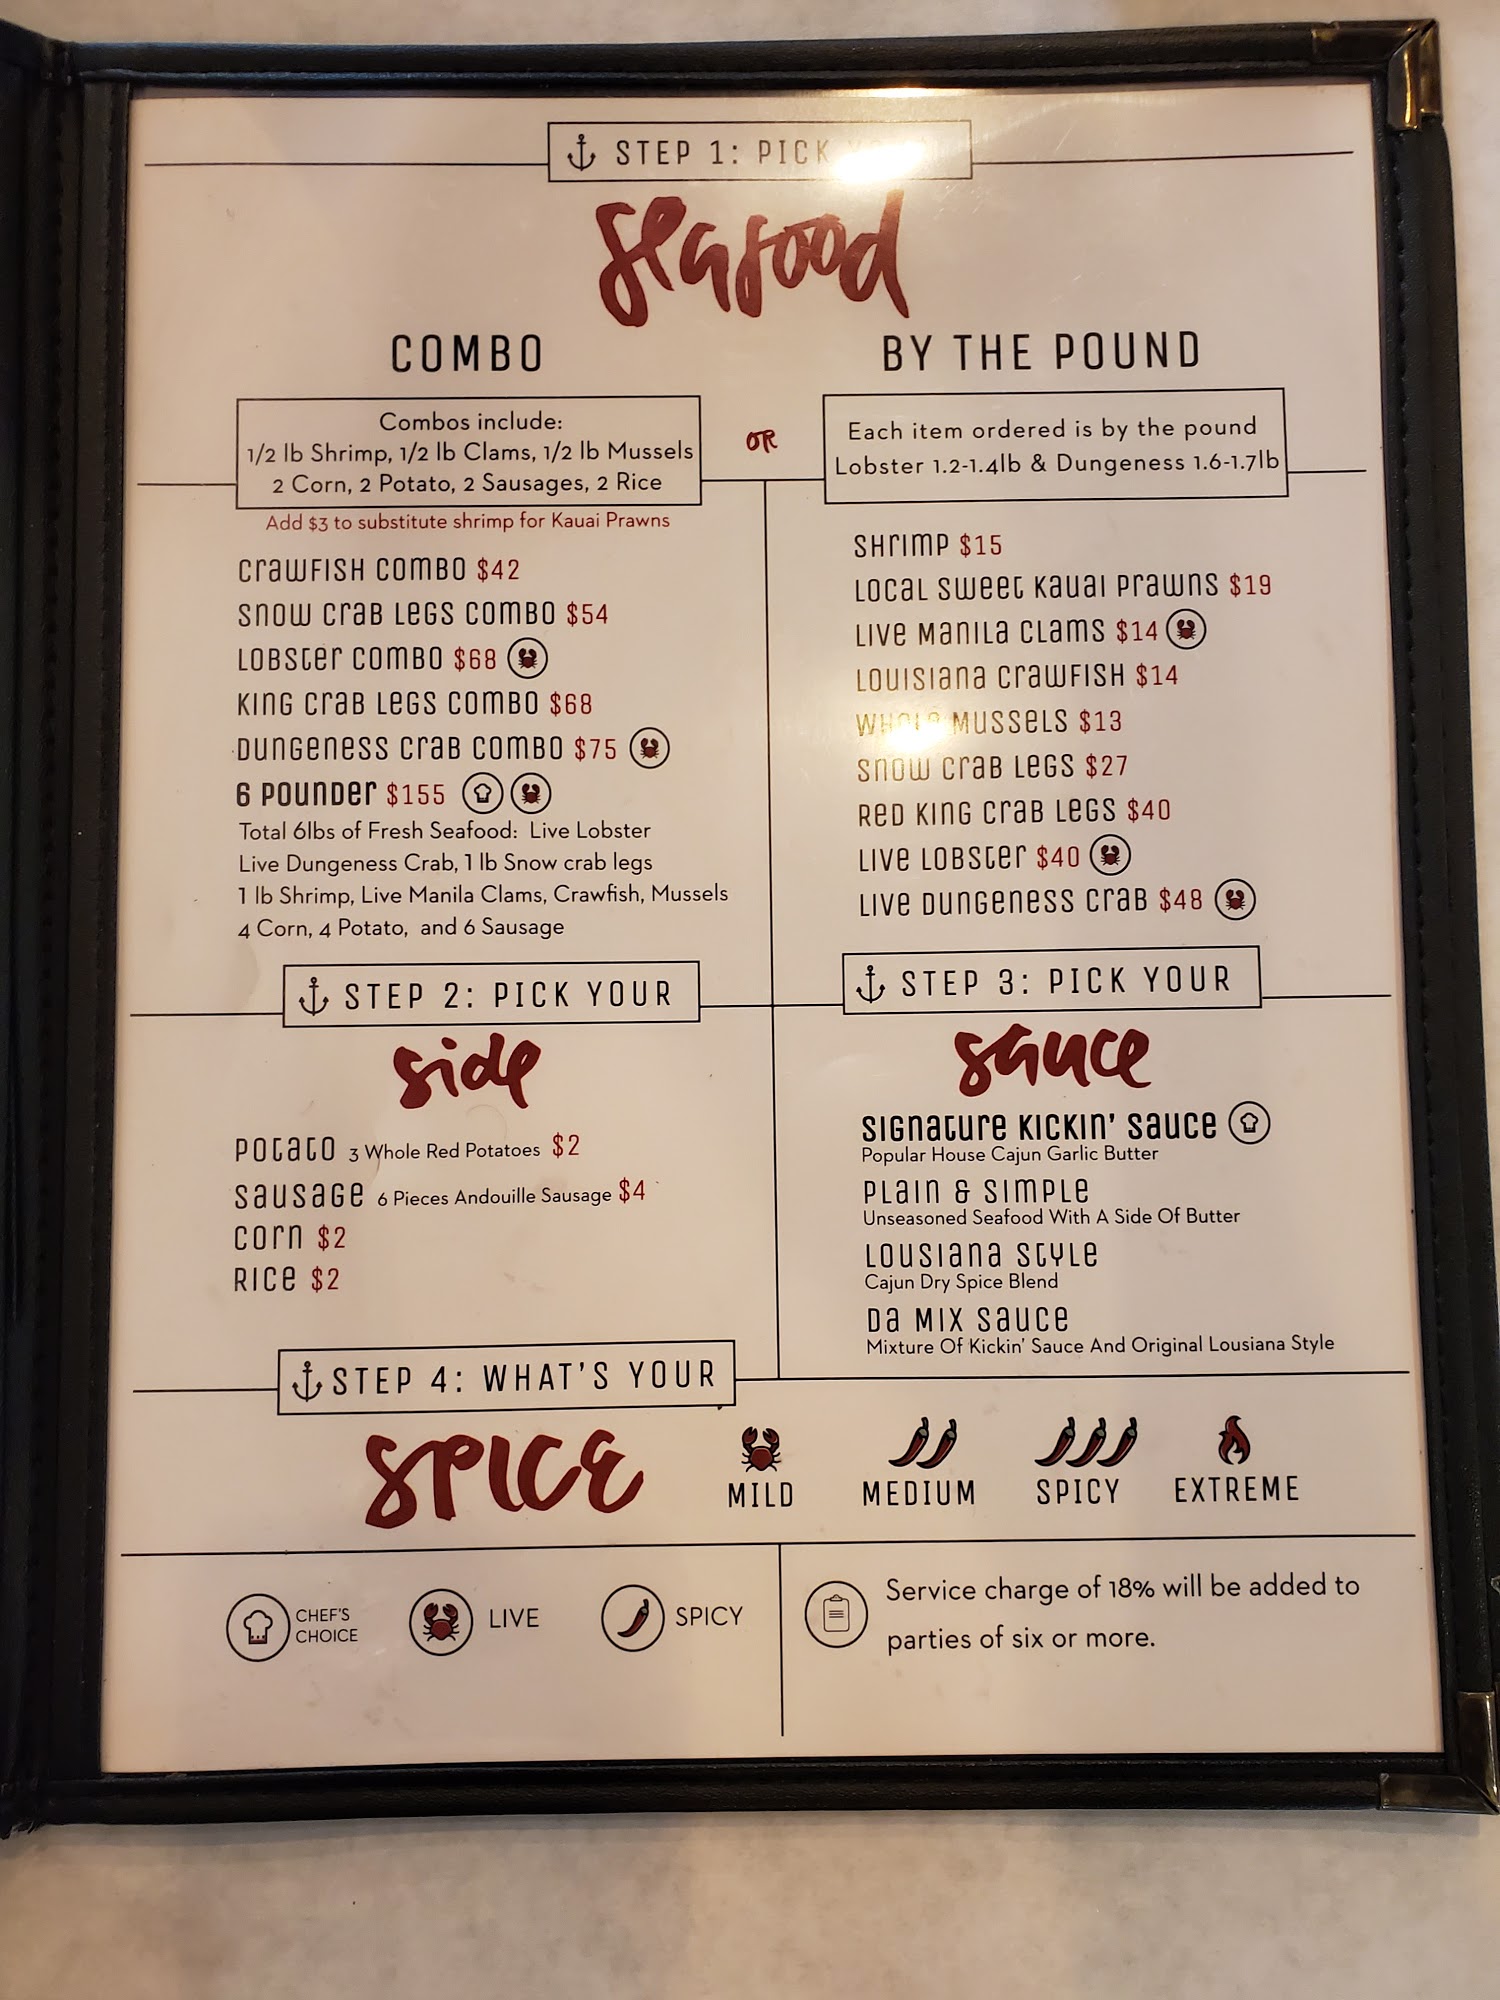 STEP 1: PICK
Seafood
COMBO
Combos include:
1/2 lb Shrimp, 1/2 lb Clams, 1/2 lb Mussels
2 Corn, 2 Potato, 2 Sausages, 2 Rice
Add $3 to substitute shrimp for Kauai Prawns
CRAWFISH COMBO $42
SNOW CRAB LEGS COMBO $54
LOBSTER COMBO $68
KING CRAB LEGS COMBO $68
DUNGENESS CRAB COMBO $75
6 POUNDER $155
Total 6lbs of Fresh Seafood: Live Lobster
Live Dungeness Crab, 1 lb Snow crab legs
1 lb Shrimp, Live Manila Clams, Crawfish, Mussels
4 Corn, 4 Potato, and 6 Sausage
OR
BY THE POUND
Each item ordered is by the pound
Lobster 1.2-1.4lb & Dungeness 1.6-1.7lb
SHRIMP $15
LOCAL SWEET KAUAI PRAWNS $19
LIVE MANILA CLAMS $14
LOUISIANA CRAWFISH $14
WHOLE MUSSELS $13
SNOW CRAB LEGS $27
RED KING CRAB LEGS $40
LIVE LOBSTER $40
LIVE DUNGENESS CRAB $48
STEP 2: PICK YOUR
side
POTATO 3 Whole Red Potatoes $2
SAUSAGE 6 Pieces Andouille Sausage $4
CORN $2
RICE $2
STEP 3: PICK YOUR
sauce
SIGNATURE KICKIN' SAUCE
Popular House Cajun Garlic Butter
PLAIN & SIMPLE
Unseasoned Seafood With A Side Of Butter
LOUSIANA STYLE
Cajun Dry Spice Blend
DA MIX SAUCE
Mixture Of Kickin' Sauce And Original Lousiana Style
STEP 4: WHAT'S YOUR
SPICE
MILD
MEDIUM
SPICY
EXTREME
CHEF'S
CHOICE
LIVE
SPICY
Service charge of 18% will be added to
parties of six or more.